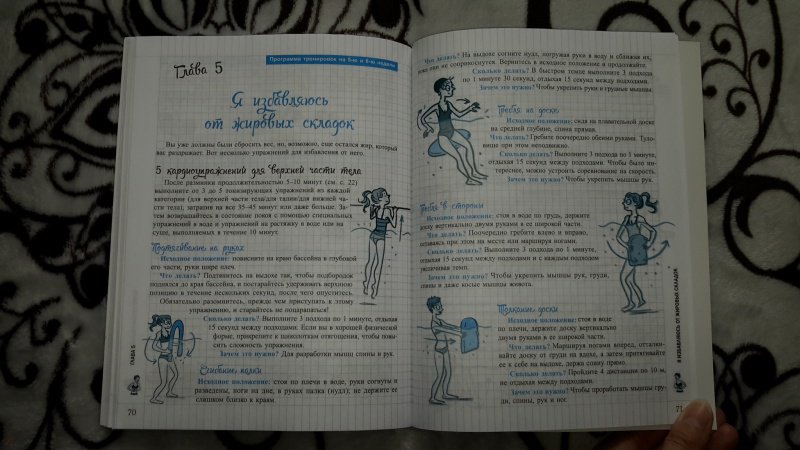 Глава 5
Программа тренировок на 5-ю и 6-ю недели
Я избавляюсь
от жировых складок
Вы уже должны были сбросить вес, но, возможно, еще остался жир, который
вас раздражает. Вот несколько упражнений для избавления от него.
5 кардиоупражнений для верхней части тела
После разминки продолжительностью 5–10 минут (см. с. 22)
выполните от 3 до 5 тонизирующих упражнений из каждой
категории (для верхней части тела/для талии/для нижней ча-
сти тела), затратив на все 35–45 минут или даже больше. За-
тем возвращайтесь в состояние покоя с помощью специальных
упражнений в воде и упражнений на растяжку в воде или на
суше, выполняемых в течение 10 минут.
Подтягивание на руках
Исходное положение: повисните на краю бассейна в глубокой
его части, руки шире плеч.
Что делать? Подтянитесь на выдохе так, чтобы подбородок
поднялся до края бассейна, и постарайтесь удерживать верхнюю
позицию в течение нескольких секунд, после чего опуститесь.
Обязательно разомнитесь, прежде чем приступать к этому
упражнению, и старайтесь не поцарапаться!
Сколько делать? Выполните 3 подхода по 1 минуте, отдыхая
15 секунд между подходами. Если вы в хорошей физической
форме, прикрепите к щиколоткам отягощения, чтобы повы-
сить сложность упражнения.
Зачем это нужно? Для разработки мышц спины и рук.
Сгибание палки
Исходное положение: стоя по плечи в воде, руки согнуты и
разведены, ноги на дне, в руках палка (нудл); не держите ее
слишком близко к краям.
ГЛАВА 5
70
Что делать? На выдохе согните нудл, погружая руки в воду и сближая их,
пока они не соприкоснутся. Вернитесь в исходное положение и продолжайте.
Сколько делать? В быстром темпе выполните 3 подхода
по 1 минуте 30 секунд, отдыхая 15 секунд между подходами.
Зачем это нужно? Чтобы укрепить руки и грудные мышцы.
Гребля на доске
Исходное положение: сидя на плавательной доске
на средней глубине, спина прямая.
Что делать? Гребите поочередно обеими руками. Туло-
вище при этом неподвижно.
Сколько делать? Выполните 3 подхода по 1 минуте,
отдыхая 15 секунд между подходами. Чтобы было ин-
тереснее, можно устроить соревнование на скорость.
Зачем это нужно? Чтобы укрепить мышцы рук.
Гребля в стороны
Исходное положение: стоя в воде по грудь, держите
доску вертикально двумя руками в ее широкой части.
Что делать? Поочередно гребите влево и вправо,
оставаясь при этом на месте или маршируя ногами.
Сколько делать? Выполните 3 подхода по 1 минуте,
отдыхая 15 секунд между подходами и с каждым подходом
увеличивая темп.
Зачем это нужно? Чтобы укрепить мышцы рук, груди,
спины и даже косые мышцы живота.
Толкание доски
Исходное положение: стоя в воде
по плечи, держите доску вертикально
двумя руками в ее широкой части.
Что делать? Маршируя ногами вперед, отталки-
вайте доску от груди на вдохе, а затем притягивайте
ее к себе на выдохе, держа спину прямо.
Сколько делать? Пройдите 4 дистанции по 10 м,
не отдыхая между подходами.
Зачем это нужно? Чтобы проработать мышцы гру-
ди, спины, рук и ног.
Я ИЗБАВЛЯЮСЬ ОТ ЖИРОВЫХ СКЛАДОК
71